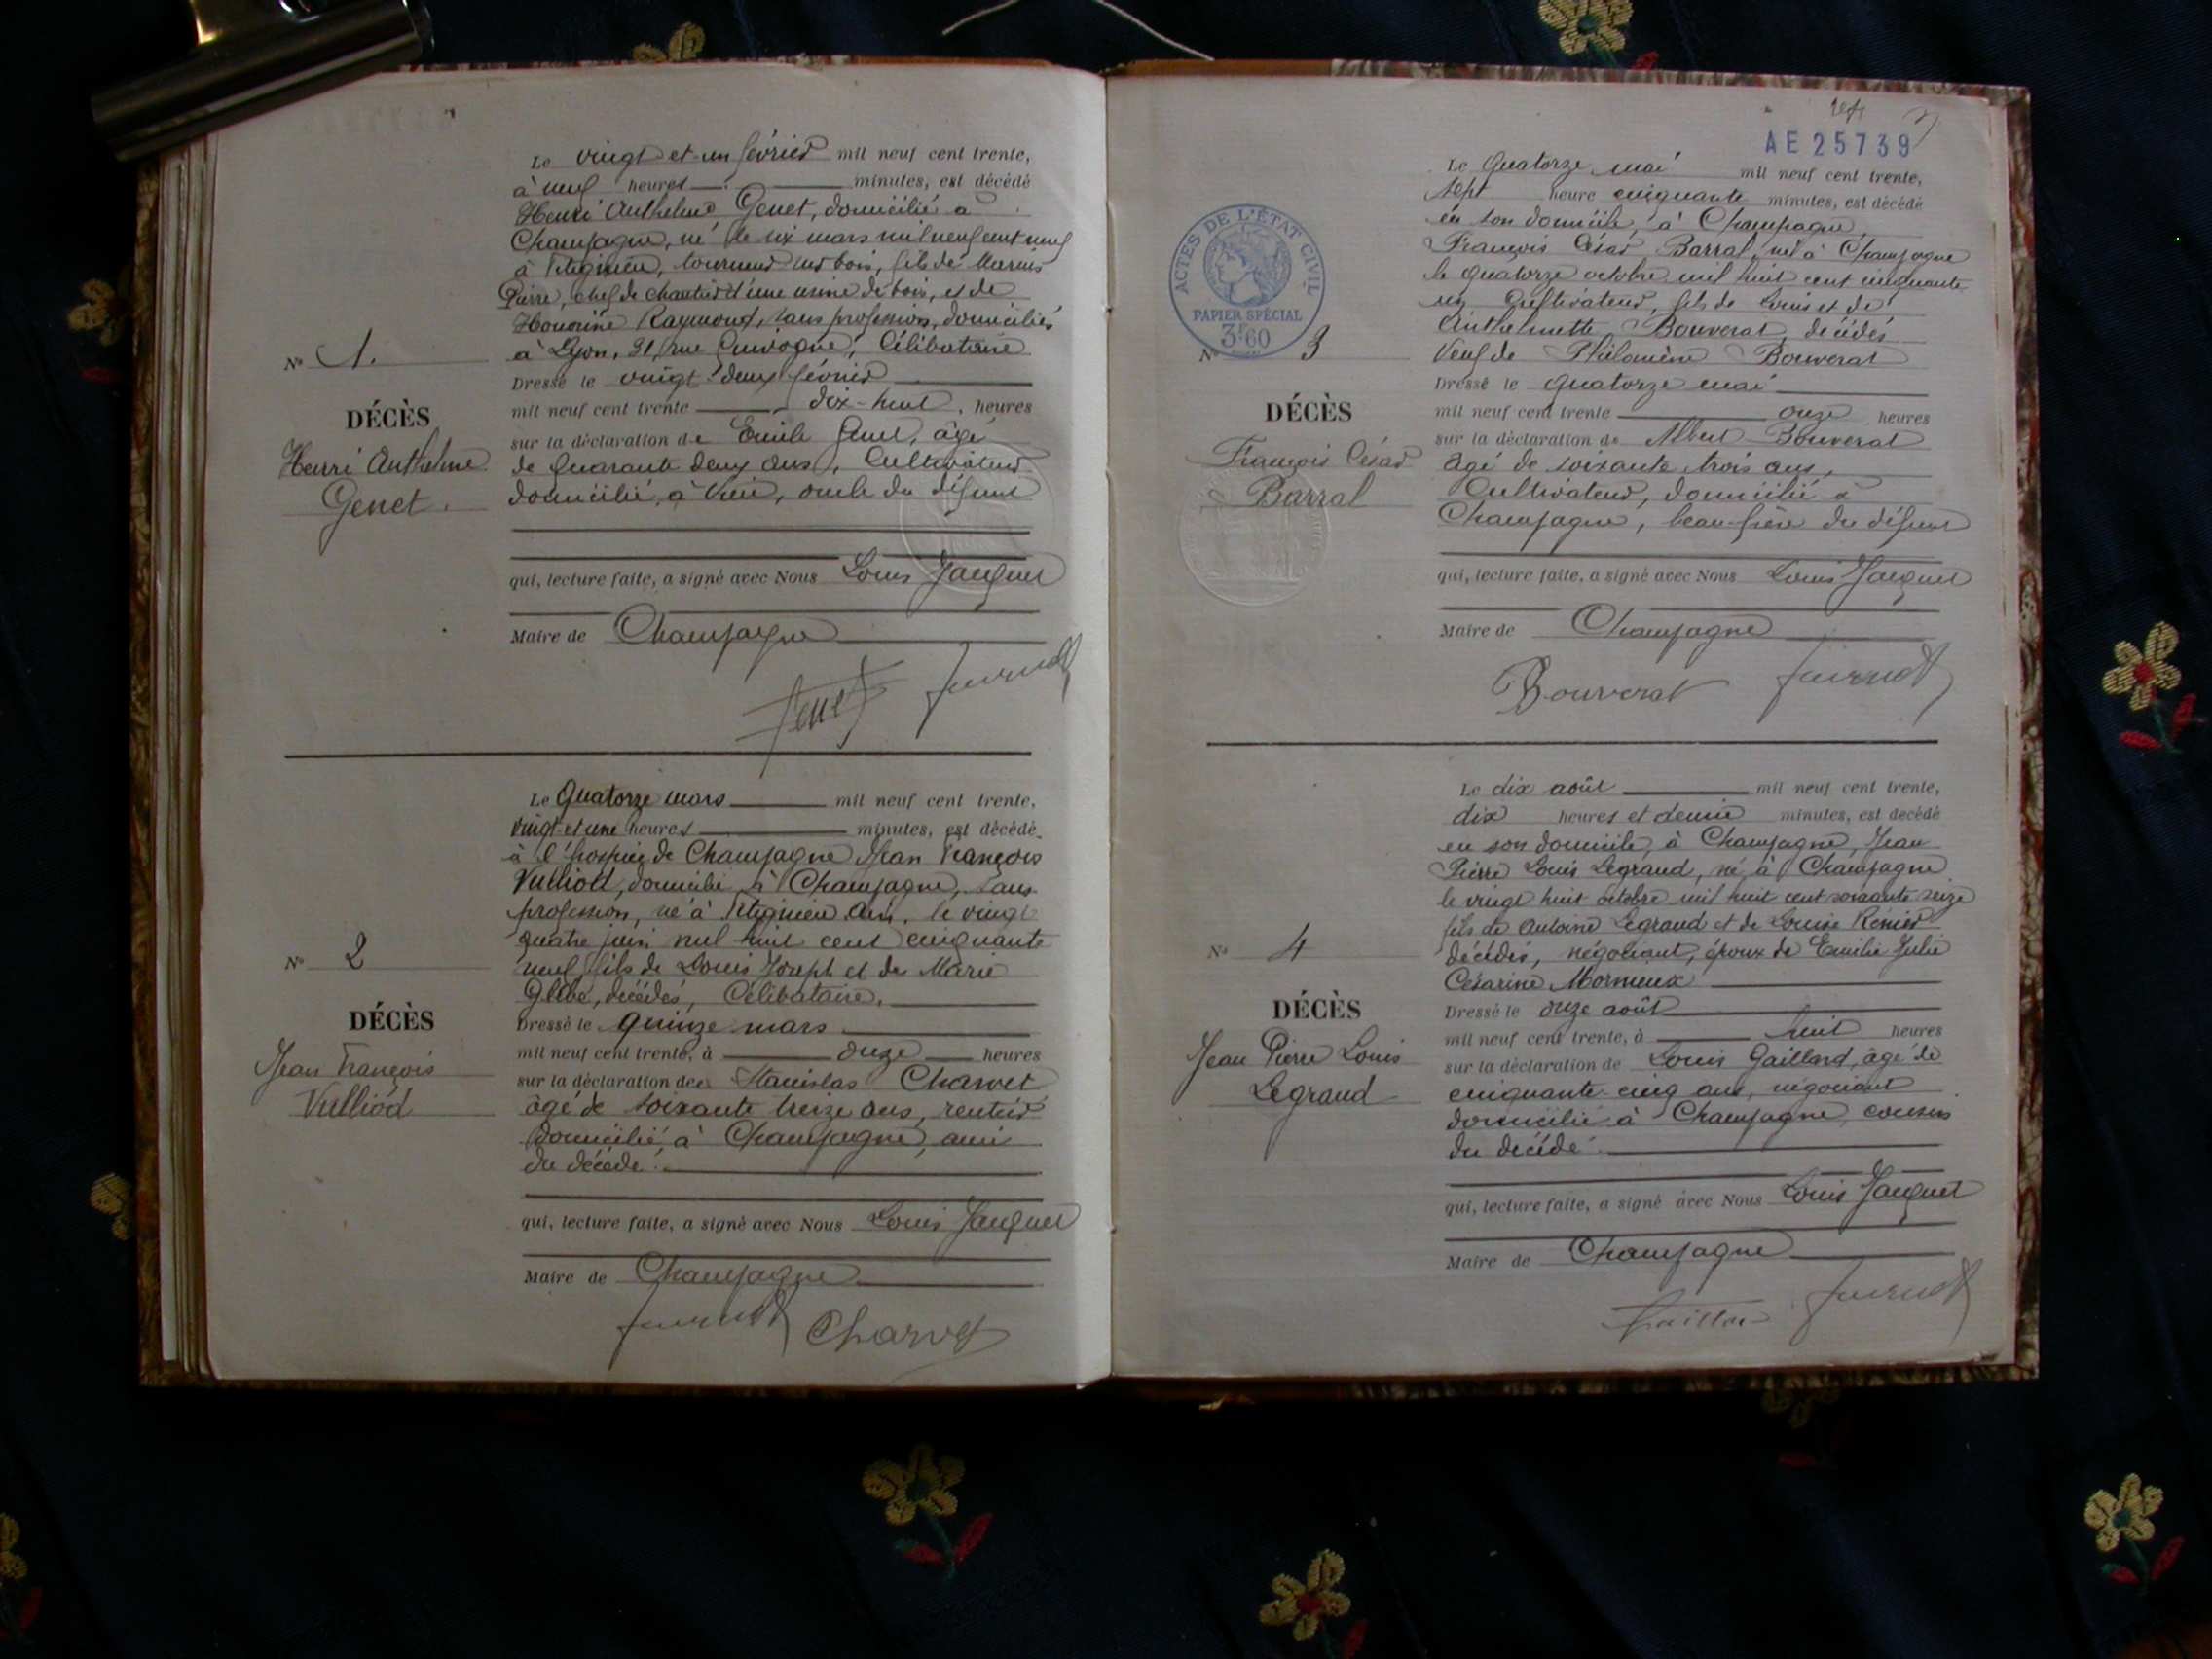 Le vingt et un février mil neuf cent trente,
à neuf heures minutes, est décédé
Henri Anthelme Genet, domicilié à
Champagne, né le six mars mil neuf cent neuf
à Virignin, tourneur sur bois, fils de Marius
Pierre, chef de chantier d'une usine de bois, et de
Honorine Raymond, sans profession, domiciliés
à Lyon, 31, rue, Célibataire
Dressé le vingt-deux février
mil neuf cent trente, dix-huit, heures
sur la déclaration de Emile Genet, âgé
de quarante deux ans, Cultivateur
domicilié à Vieu, oncle du défunt
qui, lecture faite, a signé avec Nous Louis Jacquet
Maire de Champagne
Genet
N° 1.
DÉCÈS
Henri Anthelme
Genet.
Le Quatorze mars mil neuf cent trente,
vingt-et-une heures minutes, est décédé
à l'hospice de Champagne Jean François
Vulliod, domicilié à Champagne, sans
profession, né à Ain, le vingt
quatre juin mil huit cent cinquante
neuf, fils de Louis Joseph et de Marie
décédés, Célibataire,
Dressé le quinze mars
mil neuf cent trente, à onze heures
sur la déclaration de Stanislas Charvet
âgé de soixante treize ans, rentier
domicilié à Champagne, ami
du décédé.
qui, lecture faite, a signé avec Nous Louis Jacquet
Maire de Champagne
Charvet
N° 2
DÉCÈS
Jean François
Vulliod
AE 25739
Le Quatorze mai mil neuf cent trente,
sept heure cinquante minutes, est décédé
en son domicile, à Champagne,
François César Barral, né à Champagne
le quatorze octobre mil huit cent cinquante
un, Cultivateur, fils de Louis et de
Anthelmette Bouverat, décédés
Veuf de Philomène Bouverat
Dressé le quatorze mai
mil neuf cent trente onze heures
sur la déclaration de Albert Bouverat
âgé de soixante trois ans,
Cultivateur, domicilié à
Champagne, beau-frère du défunt
qui, lecture faite, a signé avec Nous Louis Jacquet
Maire de Champagne
Bouverat
ACTES DE L'ÉTAT CIVIL
PAPIER SPÉCIAL
3F60
N° 3
DÉCÈS
François César
Barral
Le dix août mil neuf cent trente,
dix heures et demie minutes, est décédé
en son domicile, à Champagne, Jean
Pierre Louis Legrand, né à Champagne
le vingt huit octobre mil huit cent soixante seize
fils de Antoine Legrand et de Louise
décédés, négociant, époux de Emilie Julie
Césarine Mornieux
Dressé le onze août
mil neuf cent trente, à huit heures
sur la déclaration de Louis Gaillard, âgé de
cinquante-cinq ans, négociant
domicilié à Champagne, cousin
du décédé.
qui, lecture faite, a signé avec Nous Louis Jacquet
Maire de Champagne
N° 4
DÉCÈS
Jean Pierre Louis
Legrand